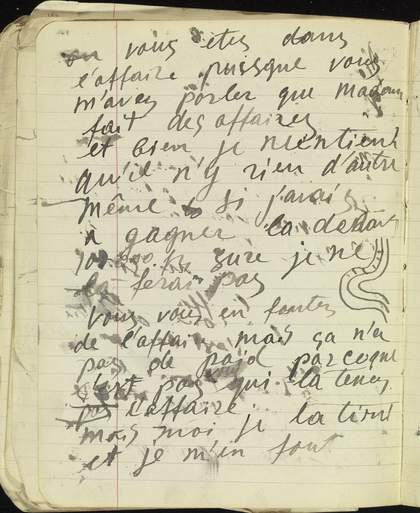 ou vous etes dans
l'affaire puisque vous
m'avez parler que Madame
fait des affaires
et bien je
qu'il n'y rien d'autre
même si j'avais
a gagner la dedans
100.000 je ne
la ferais pas
vous vous en foutez
de l'affaire mais ça n'a
pas de poid parceque
c'est pas qui la tenez
l'affaire
mais moi je la tient
et je m'en fout